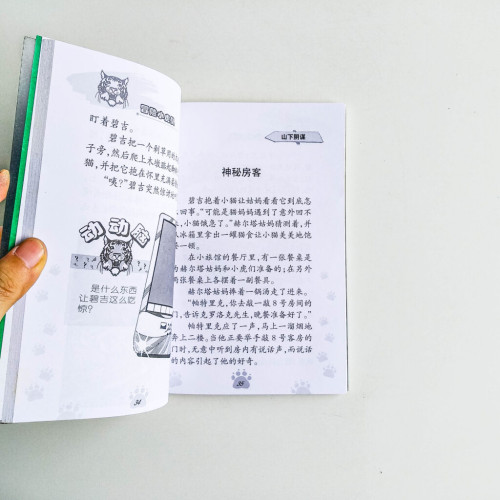 冒险小虎队
盯着碧吉。
碧吉把一个割草
子旁,然后爬上木墩
猫,并把它抱在怀里
“咦?”碧吉突然
动动脑
是什么东西
让碧吉这么吃
惊?
34
山下阴谋
神秘房客
碧吉抱着小猫让姑妈看看它到底怎
回事。“可能是猫妈妈遇到了意外回不
,小猫饿急了。”赫尔塔姑妈猜测着,并
冰箱里拿出一罐猫食让小猫美美地饱
一顿。
在小旅馆的餐厅里,有一张餐桌是
为赫尔塔姑妈和小虎们准备的;在另外
两张餐桌上各摆着一副餐具。
赫尔塔姑妈捧着一锅汤走了进来。
“帕特里克,你去敲一敲 8 号房间的
门,告诉克罗洛克先生,晚餐准备好了。”
帕特里克应了一声,马上一溜烟地
奔上二楼。当他正要举手敲 8 号客房的
门时,无意中听到房内有说话声,而说话
的内容引起了他的好奇。
35